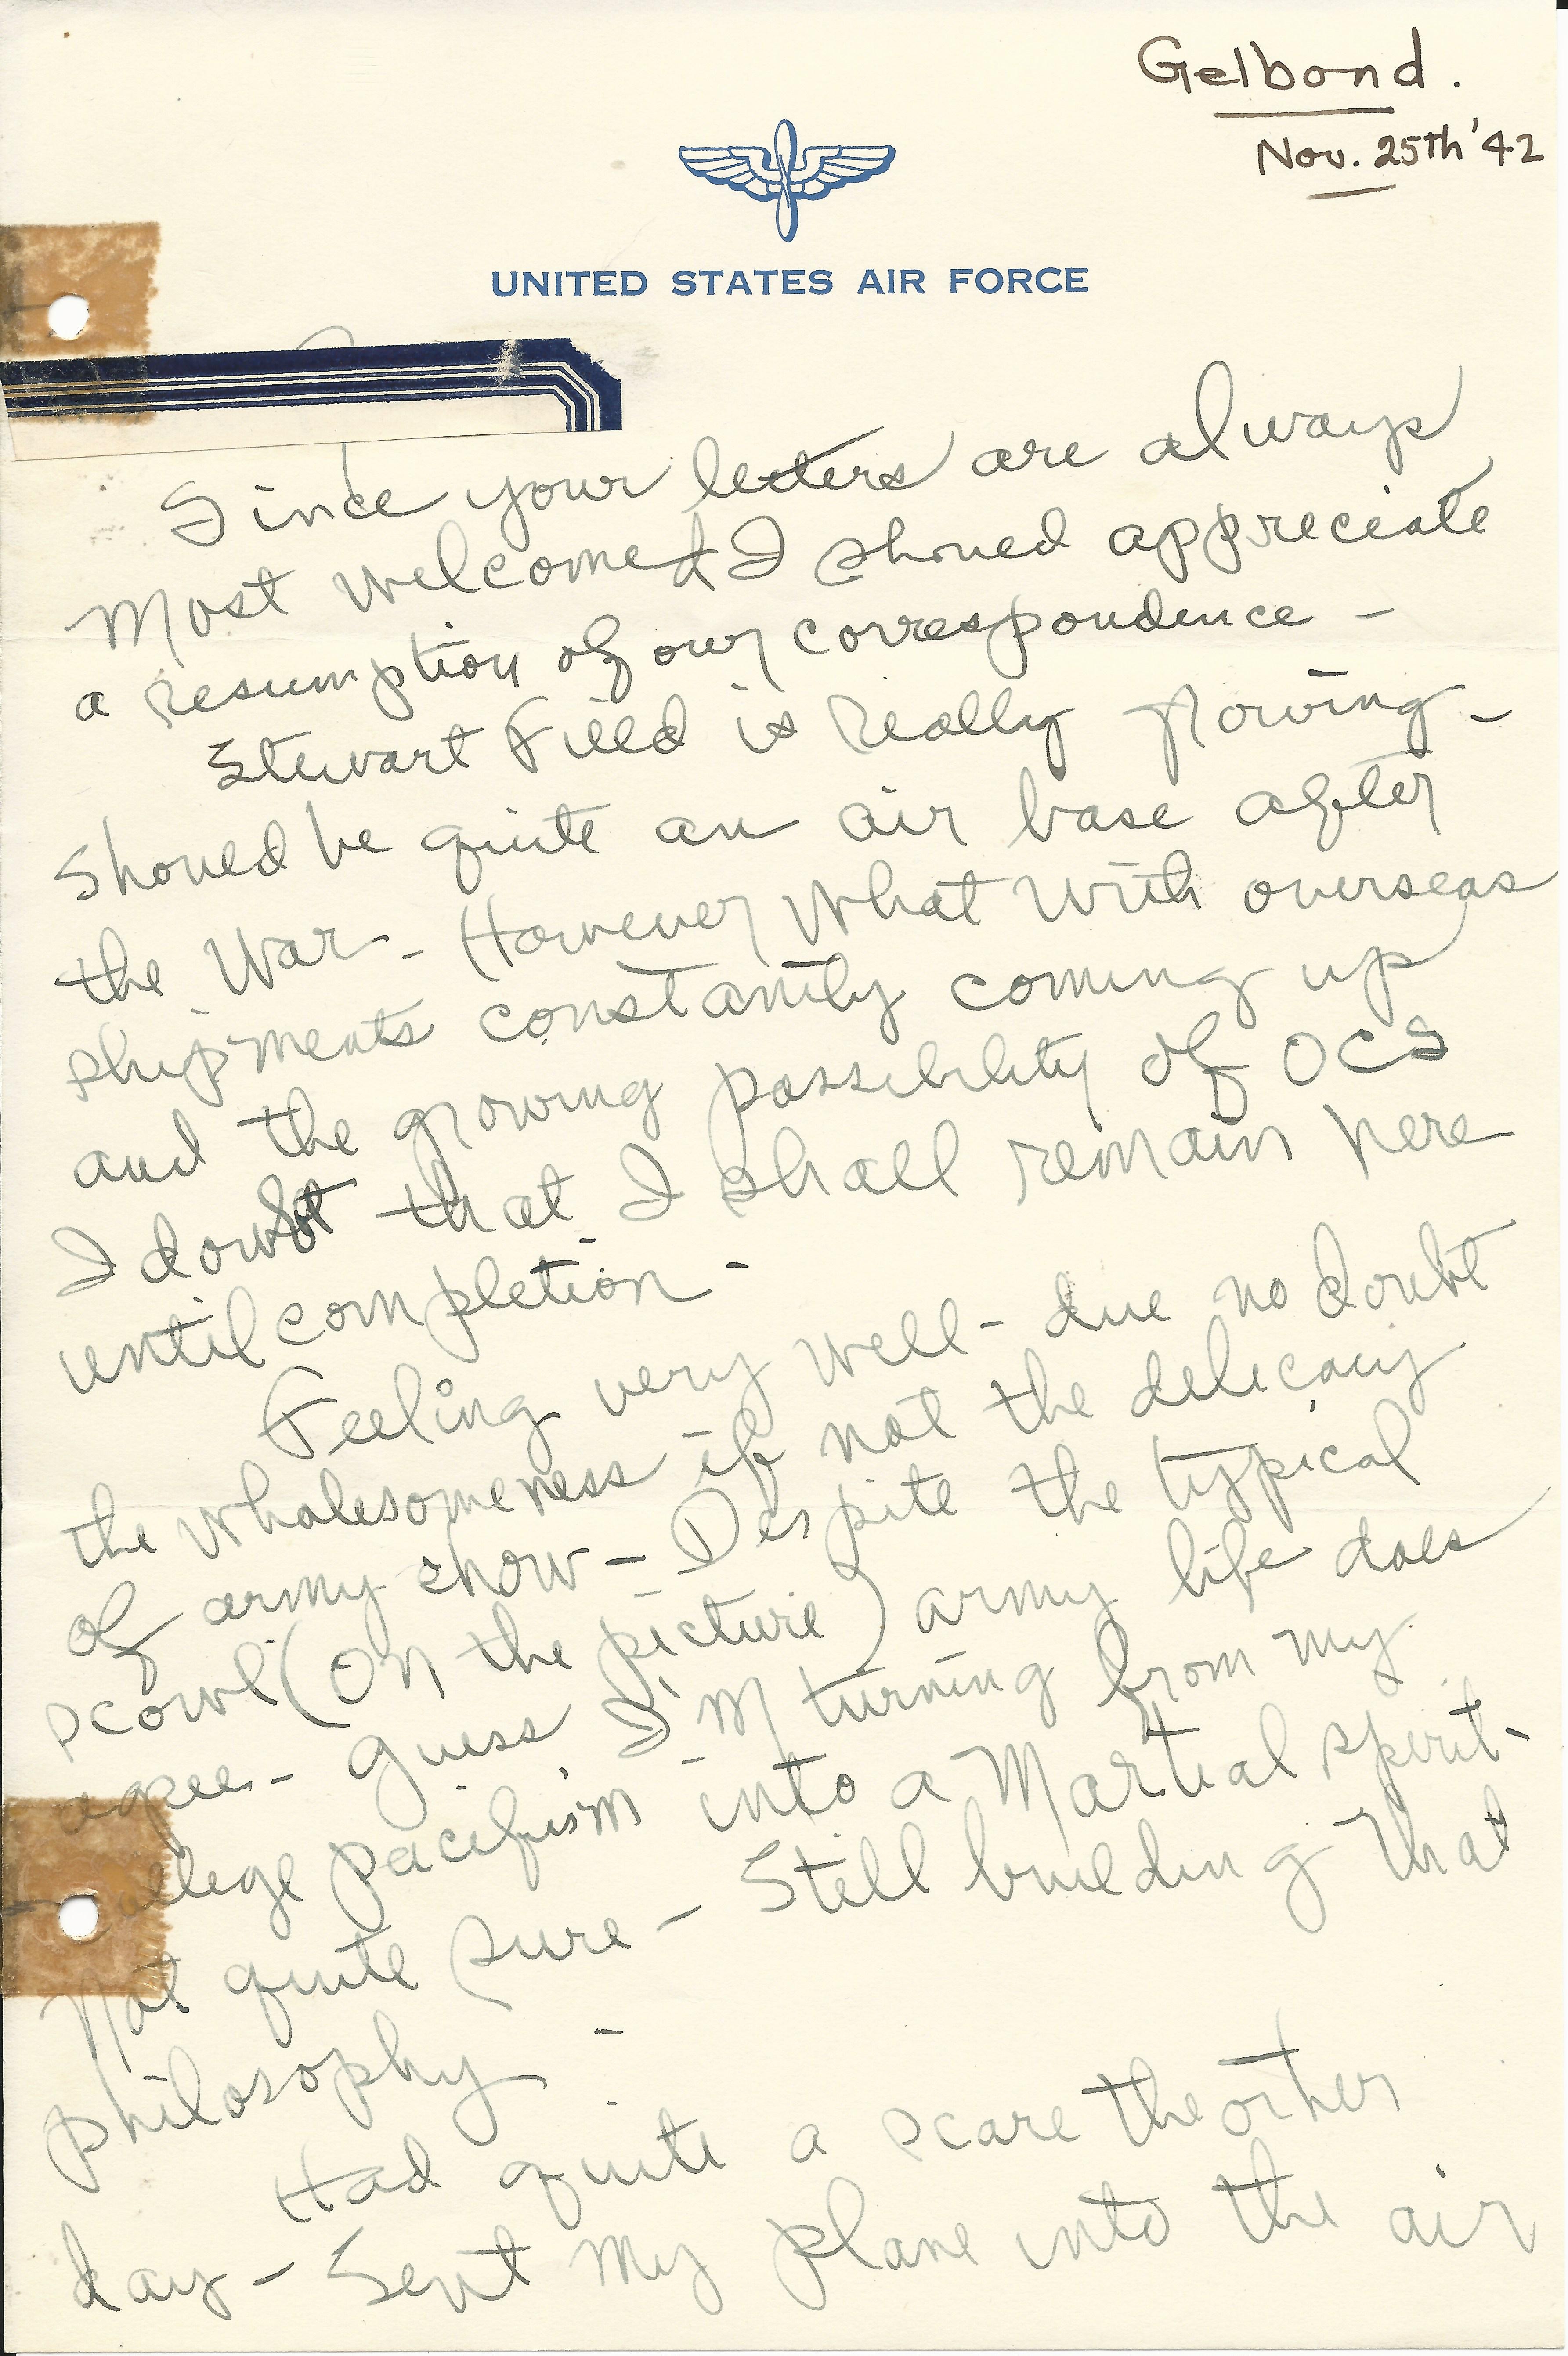 Gelbond.
Nov. 25th '42
UNITED STATES AIR FORCE
Since your letters are always
most welcomed I should appreciate
a resumption of our correspondence -
Stewart Field is really growing -
Should be quite an air base after
the War - However what with overseas
shipments constantly coming up
and the growing possibility of OCS
I doubt that I shall remain here
until completion -
Feeling very well - due no doubt
the wholesomeness if not the delicacy
of army chow - Despite the typical
scowl (on the picture) army life does
agree - Guess I'm turning from my
college pacifism into a martial spirit -
Not quite sure - Still building that
philosophy -
Had quite a scare the other
day - Sent my plane into the air